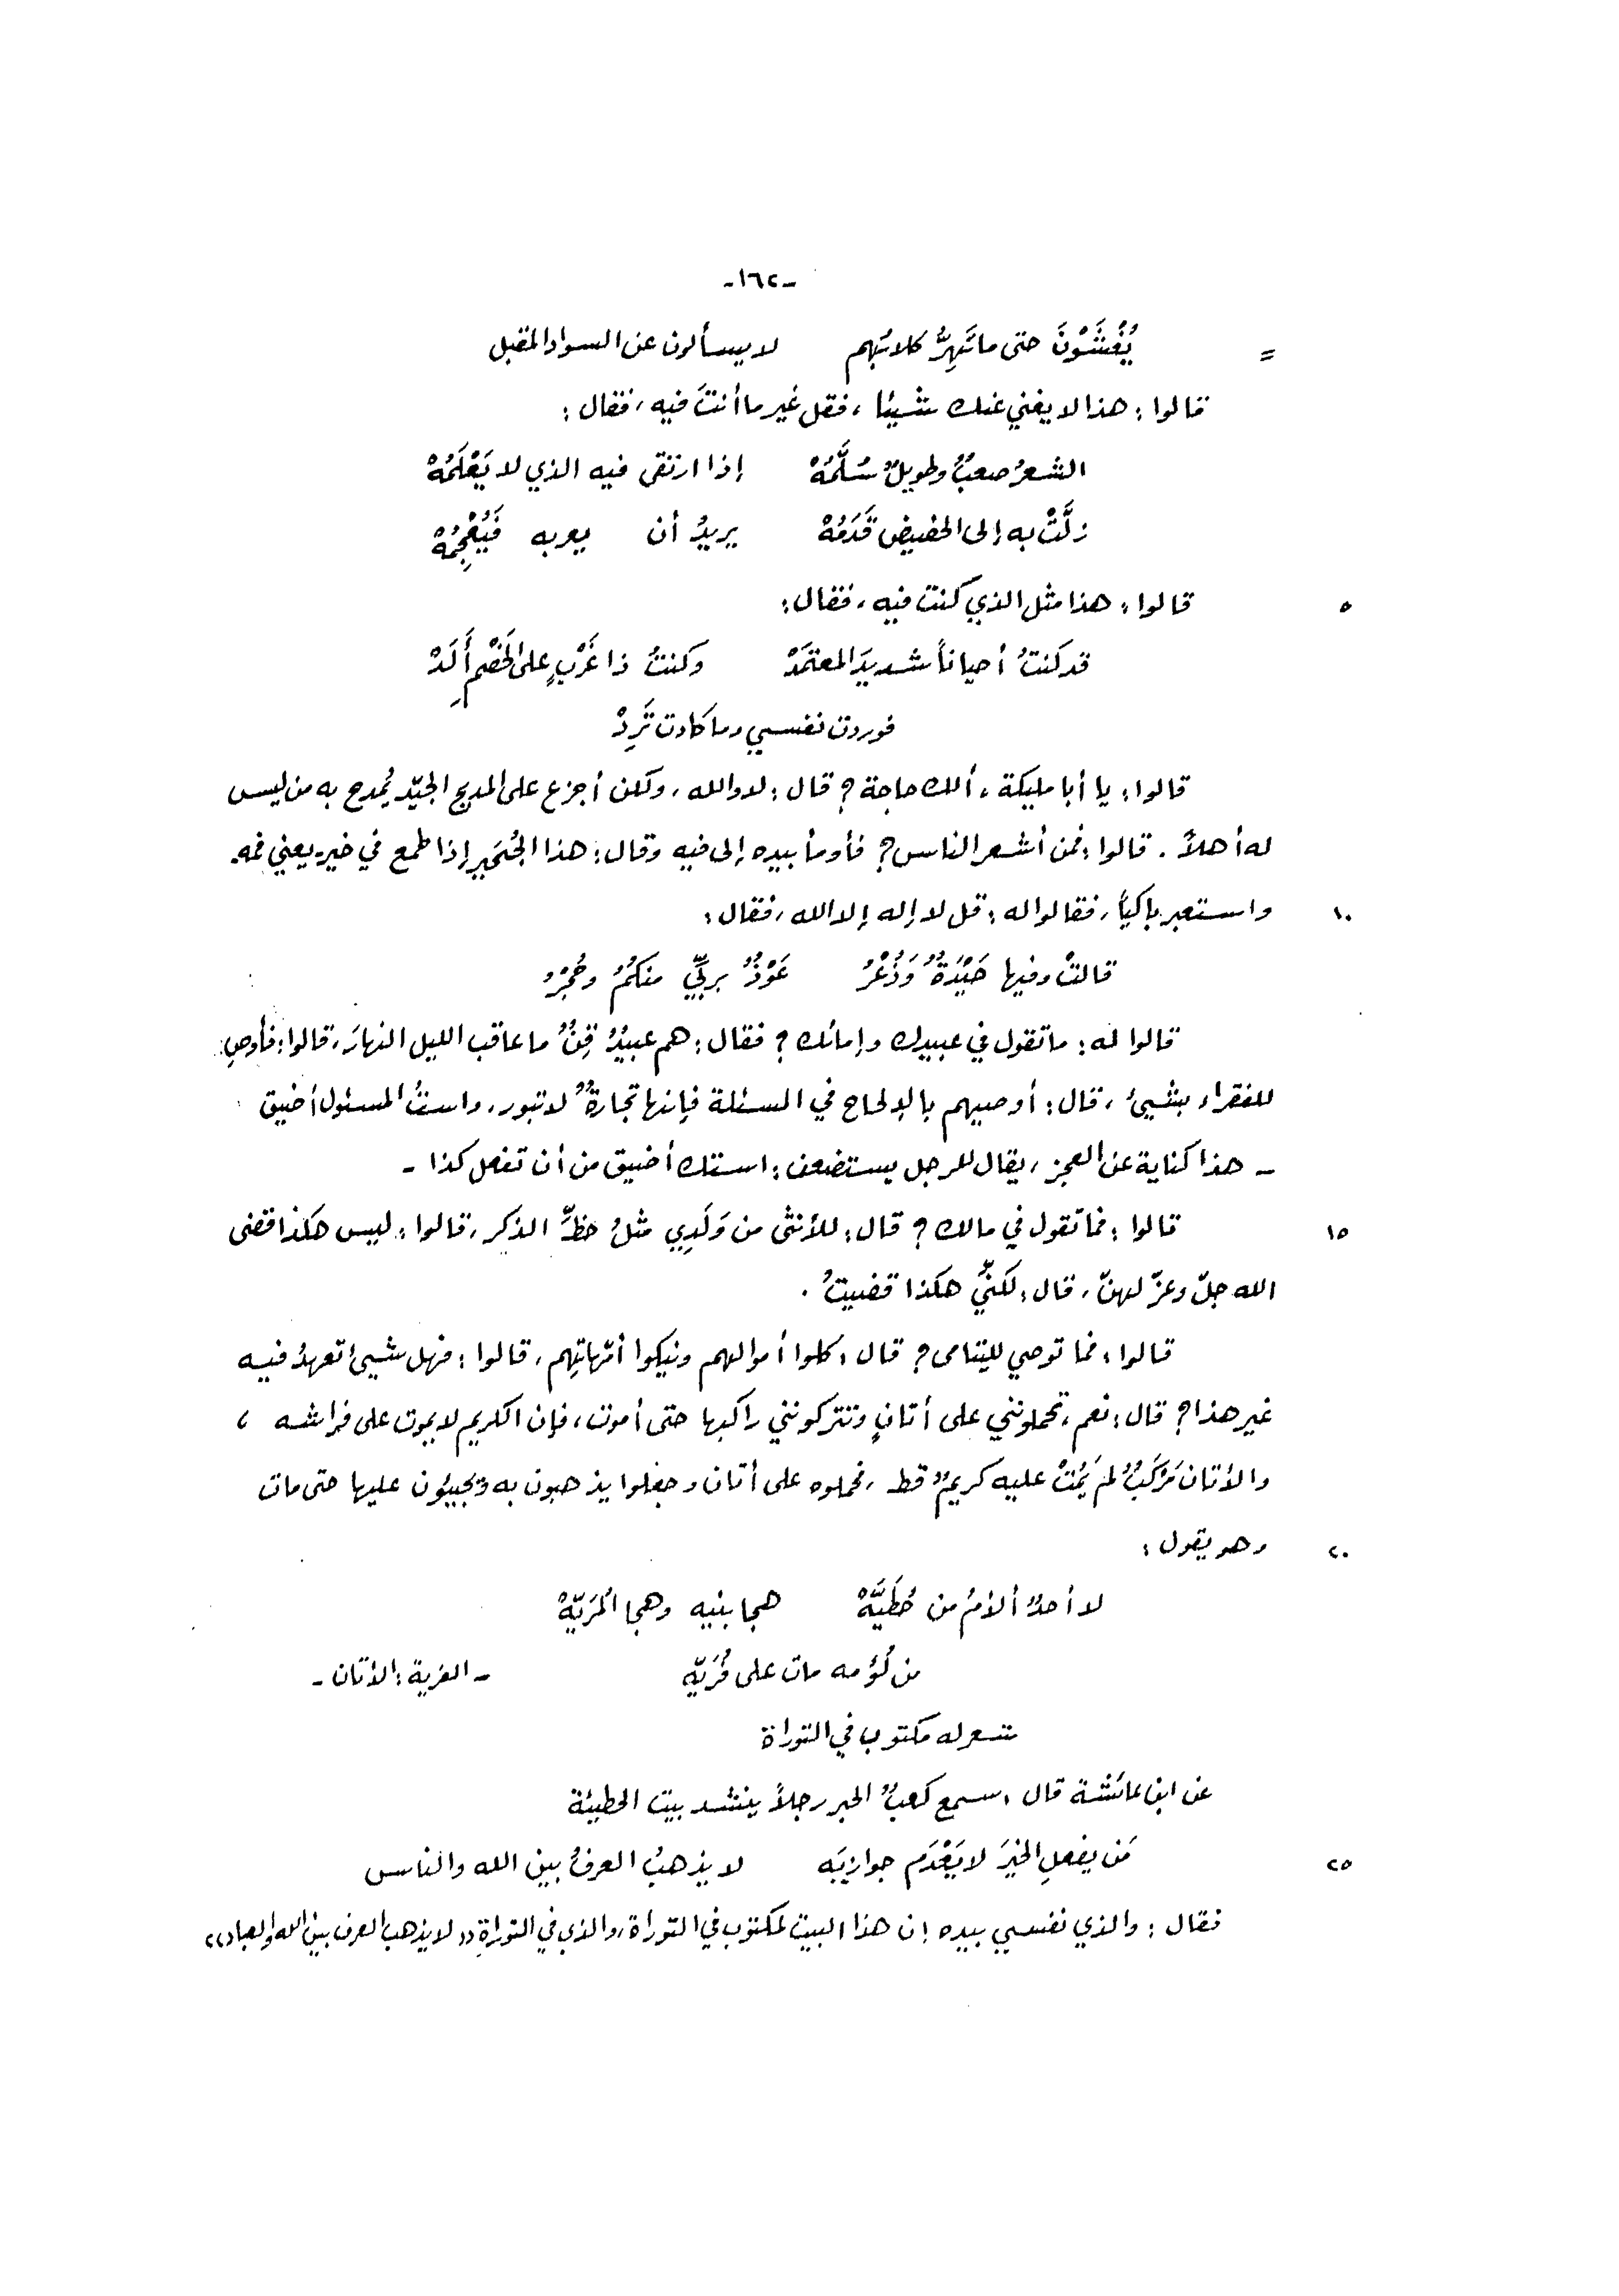 -١٦٢-
= يُغْشَوْنَ حتى ما تَهِرُّ كلابُهم لا يسألون عن السواد المقبل
قالوا: هذا لا يغني عنك شيئا، فقل غير ما أنتَ فيه، فقال:
الشعرُ صعبٌ وطويلٌ سُلَّمُهْ إذا ارتقى فيه الذي لا يَعْلَمُهْ
زلَّتْ به إلى الحضيض قَدَمُهْ يريدُ أن يعربه فَيُعْجِمُهْ
٥ قالوا: هذا مثل الذي كنت فيه، فقال:
قد كنتُ أحياناً شديدَ المعتمَدْ وكنتُ ذا غَرْبٍ على الخَصْمِ أَلَدْ
فوردت نفسي وما كادت تَرِدْ
قالوا: يا أبا مليكة، ألك حاجة؟ قال: لا والله، ولكن أجزع على المديح الجيّد يُمدح به من ليس
له أهلاً. قالوا: فمن أشعر الناس؟ فأومأ بيده إلى فيه وقال: هذا الجُحَير إذا طمع في خير، يعني فمه.
١٠ واستعبر باكياً، فقالوا له: قل لا إله إلا الله، فقال:
قالتْ وفيها حَيْدَةٌ وَذُعْرُ عَوْذٌ بربِّي منكمُ وحُجْرُ
قالوا له: ما تقول في عبيدك وإمائك؟ فقال: هم عبيدٌ قِنٌّ ما عاقب الليل النهارَ، قالوا: فأوصِ
للفقراء بشيئ، قال: أوصيهم بالإلحاح في المسئلة فإنها تجارةٌ لا تبور، واستُ المسئول أضيق
- هذا كناية عن العجز، يقال للرجل يستضعف: استك أضيق من أن تفعل كذا -
١٥ قالوا: فما تقول في مالك؟ قال: للأنثى من وَلَدِي مثلُ حظِّ الذكر، قالوا: ليس هكذا قضى
الله جلّ وعزّ لهنّ، قال: لكنّي هكذا قضيتُ.
قالوا: فما توصي لليتامى؟ قال: كلوا أموالهم ونيكوا أمّهاتِهم، قالوا: فهل شيئ تعهدُ فيه
غير هذا؟ قال: نعم، تحملونني على أتانٍ وتتركونني راكبها حتى أموت، فإن الكريم لا يموت على فراشه،
والأتان مَرْكَبٌ لم يَمُتْ عليه كريمٌ قط، فحملوه على أتان وجعلوا يذهبون به ويجيئون عليها حتى مات
٢٠ وهو يقول:
لا أحدٌ ألأمُ من حُطَيَّهْ هجا بنيه وهجا المُرَيّهْ
من لُؤمه مات على فُرَيّه - الفرية: الأتان -
شعر له مكتوب في التوراة
عن ابن عائشة قال: سمع كعبٌ الحبر رجلاً ينشد بيت الحطيئة
٢٥ مَن يفعلِ الخيرَ لا يَعْدَم جوازيَه لا يذهبُ العرفُ بين الله والناس
فقال: والذي نفسي بيده إن هذا البيت لمكتوب في التوراة، والذي في التوراةِ «لا يذهب العرف بين الله والعباد»